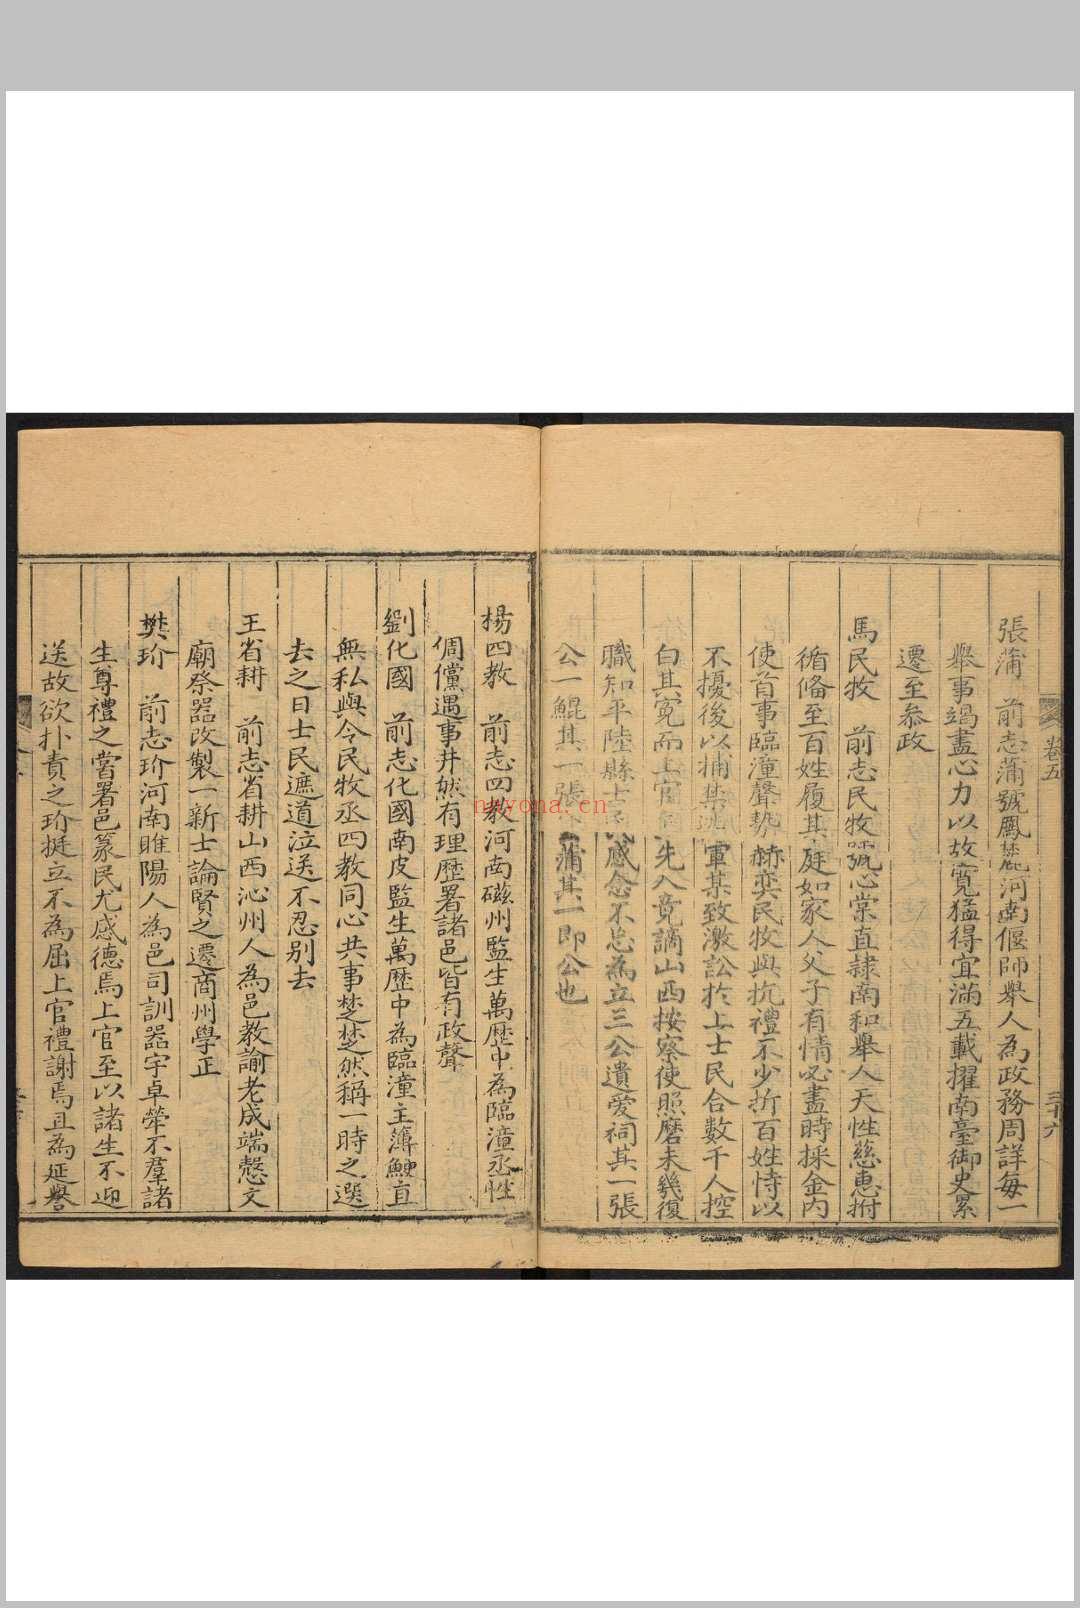 卷五
三十六
張蒲 前志蒲號鳳麓河南偃師舉人為政務周詳每一
舉事竭盡心力以故寬猛得宜滿五載擢南臺御史累
遷至叅政
馬民牧 前志民牧號心棠直隸南和舉人天性慈惠拊
循俻至百姓履其庭如家人父子有情必盡時採金內
使首事臨潼聲勢赫奕民牧與抗禮不少折百姓恃以
不擾後以捕 軍某致激訟於上士民合數千人控
白其冤而上官 先入竟謫山西按察使照磨未幾復
職知平陸縣士民感念不忘為立三公遺愛祠其一張
公一鯤其一張公蒲其一即公也
楊四教 前志四教河南磁州監生萬歷中為臨潼丞性
倜儻遇事井然有理歷署諸邑皆有政聲
劉化國 前志化國南皮監生萬歷中為臨潼主簿鯁直
無私與令民牧丞四教同心共事楚楚然稱一時之選
去之日士民遮道泣送不忍别去
王省耕 前志省耕山西沁州人為邑教諭老成端慤文
廟祭器改製一新士論賢之遷商州學正
樊玠 前志玠河南睢陽人為邑司訓器宇卓犖不羣諸
生尊禮之嘗署邑篆民尤感德焉上官至以諸生不迎
送故欲扑責之玠挺立不為屈上官禮謝焉且為延譽
nayona.cn